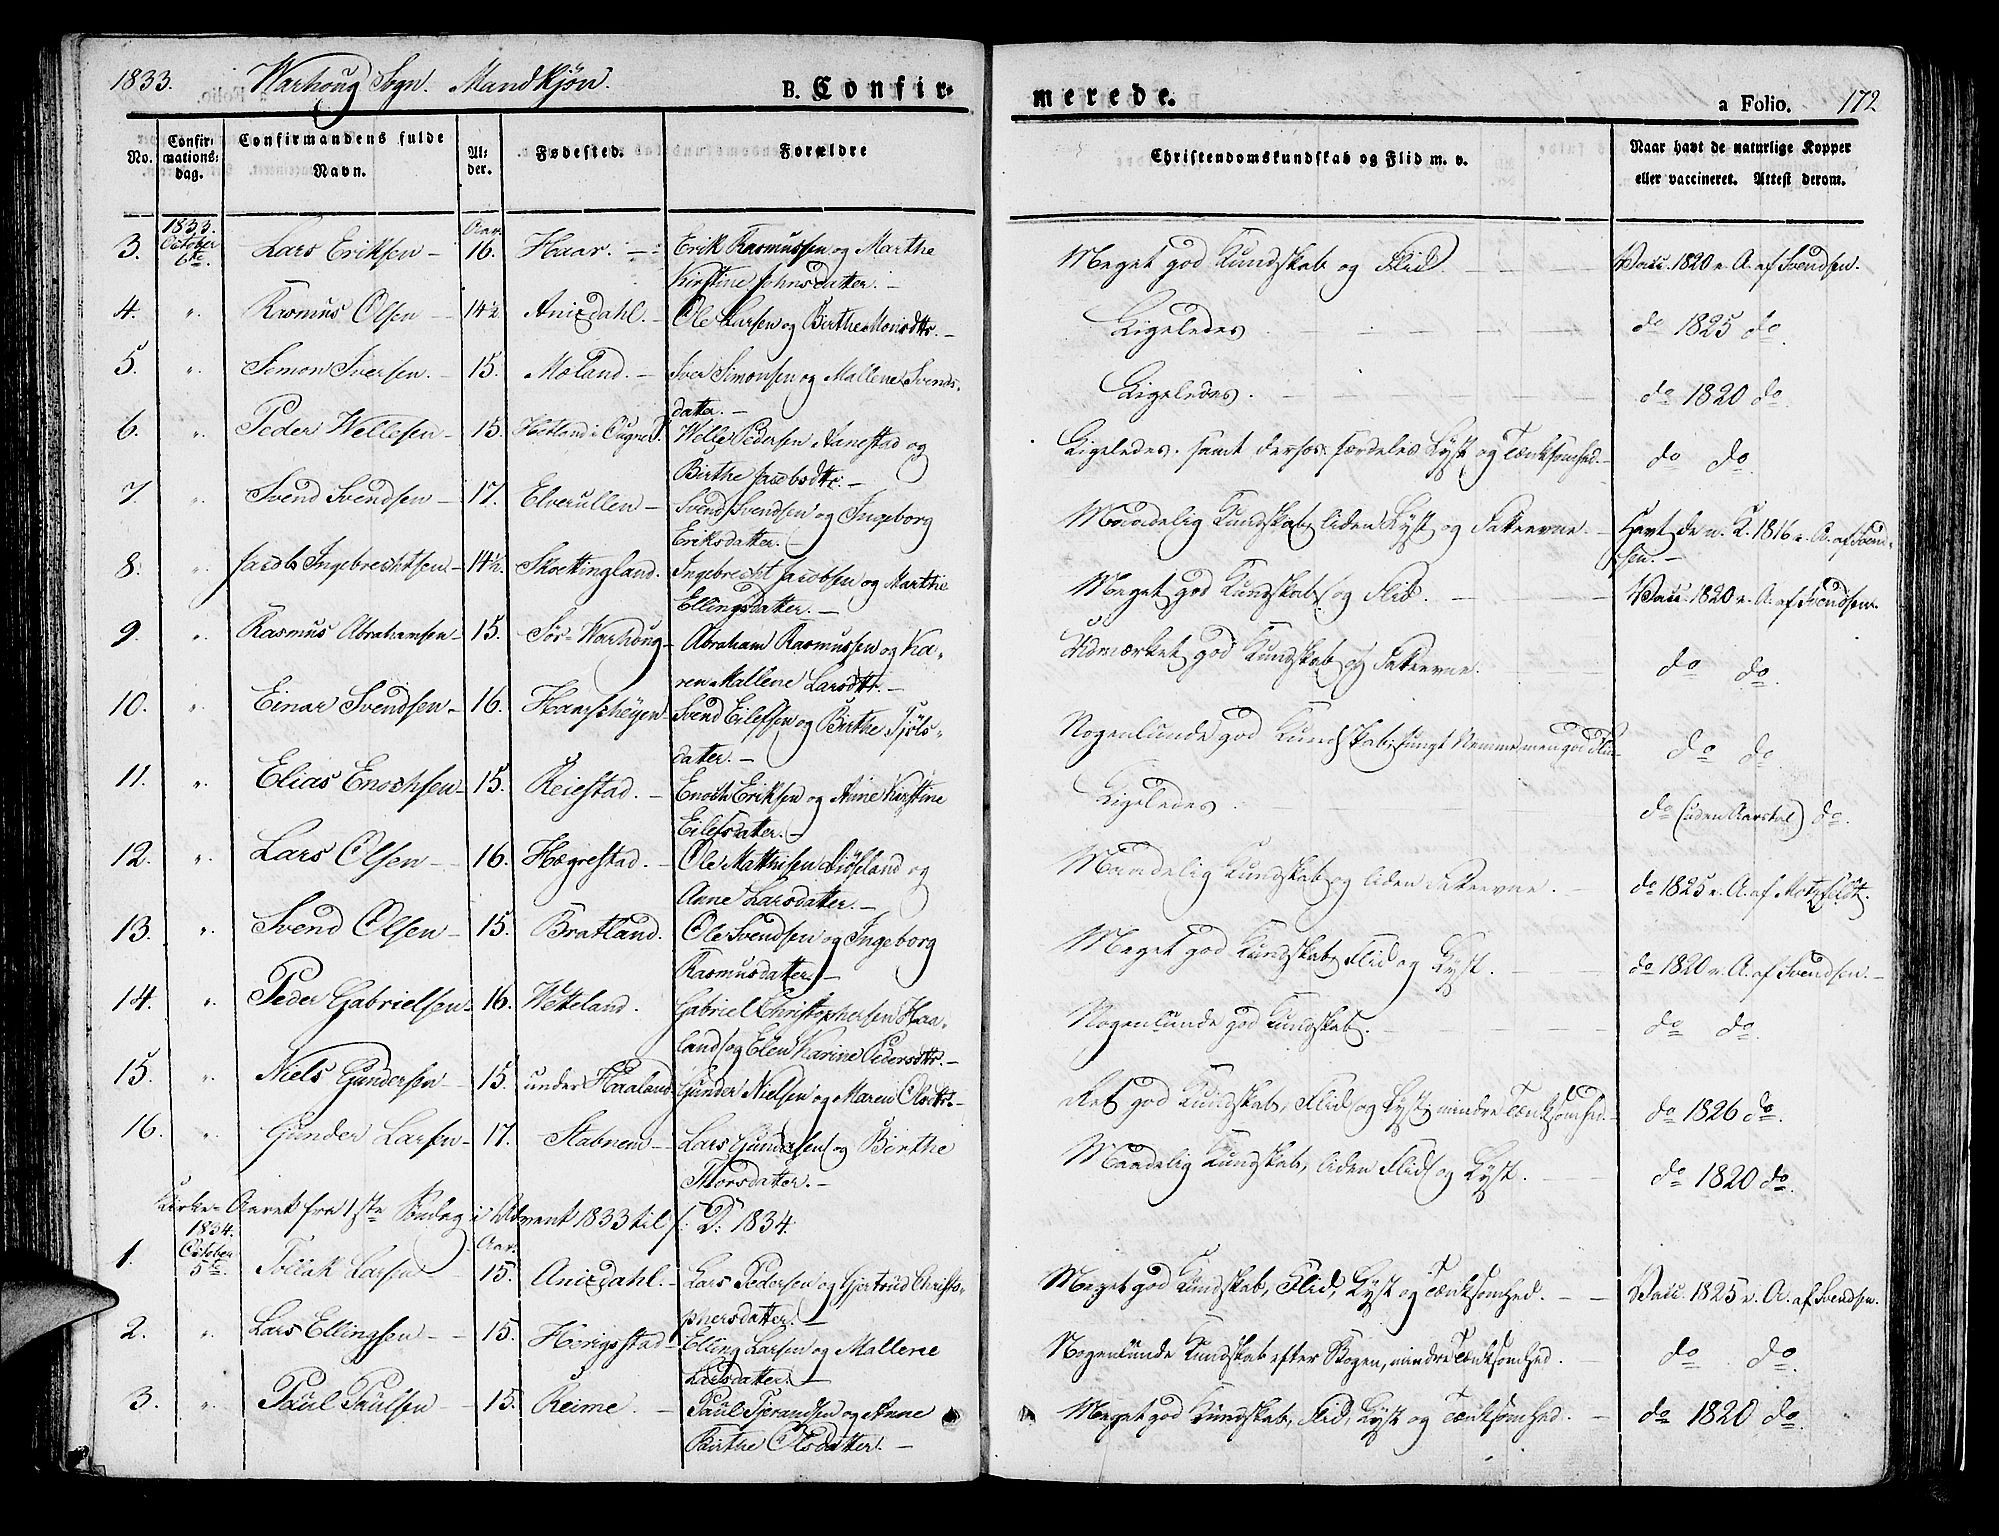 1833. Warhoug Sogn. Mandkjøn. B. Confirmerede. a Folio. 172
No. Confirmations-dag. Confirmandens fulde Navn. Alder. Fødested. Forældre Christendomskundskab og Flid m. v. Naar havt de naturlige Kopper eller vaccineret. Attest derom.
1833. Aar.
3. October 6te. Lars Eriksen 16. Haar. Erik Rasmussen og Marthe Meget god Kundskab og Flid. Vacc. 1820 v. A. af Svendsen.
Kirstine Johnsdatter.
4. ". Rasmus Olsen 14½ Anisdahl. Ole Larsen og Birthe Monsdtr. Ligeledes do 1825 do.
5. ". Simon Iversen. 15. Moland. Iver Simonsen og Mallene Svends- Ligeledes. do 1820 do.
datter.
6. ". Peder Wellesen 15. Hetland i Ougne S. Welle Pedersen Anestad og Ligeledes. samt derhos særdeles Lyst og Tænksomhed. do do.
Birthe Jacobsdtr.
7. ". Svend Svendsen 17. Elverullen Svend Svendsen og Ingeborg Maadelig Kundskab, liden Lyst og Fatteevne. Havt de n. K. 1816 v. A. af Svend-
Eriksdatter. sen.
8. ". Jacob Ingebrechtsen 14½. Skrettingland. Ingebrecht Jacobsen og Marthe Meget god Kundskab og Flid. Vacc. 1820 v. A. af Svendsen.
Ellingsdatter.
9. ". Rasmus Abrahamsen 15. Sør-Warhoug Abraham Rasmussen og Ka- Udmærket god Kundskab og Fatteevne. do do.
ren Mallene Larsdtr.
10. ". Einar Svendsen 16. Haarschøyen Svend Eilefsen og Birthe Tjøls- Nogenlunde god Kundskab, tungt Nemme, men god Flid. do do.
datter.
11. ". Elias Enochsen 15. Reiestad. Enoch Eriksen og Anne Kirstine Ligeledes. do (uden Aarstal) do.
Eilefsdatter.
12. ". Lars Olsen 16. Høgrestad. Ole Matthisen og Maadelig Kundskab og liden Fatteevne. do 1825 v. A. af Motzfeldt.
Anne Larsdatter.
13. ". Svend Olsen 15. Bratland. Ole Svendsen og Ingeborg Meget god Kundskab, Flid og Lyst. do 1820 v. A. af Svendsen.
Rasmusdatter.
14. ". Peder Gabrielsen 16. Wetteland. Gabriel Christophersen Haa- Nogenlunde god Kundskab. do do.
land og Elen Karine Pedersdtr.
15. ". Niels Gundersen 15. under Haaland Gunder Nielsen og Maren Olsdtr. Ret god Kundskab, Flid og Lyst, mindre Tænksomhed. do 1826 do.
16. ". Gunder Larsen 17. Stabnem Lars Gundersen og Birthe Maadelig Kundskab, liden Flid og Lyst. do 1820 do.
Thorsdatter.
Kirke-Aaret fra 1ste Søndag i Advent 1833 til s. D. 1834.
1834. Aar.
1. October 5te. Tollak Larsen 15. Anisdahl. Lars Pedersen og Gjertrud Christo- Meget god Kundskab, Flid, Lyst og Tænksomhed. Vacc. 1825 v. A. af Svendsen.
phersdatter.
2. ". Lars Ellingsen 15. Herigstad Elling Larsen og Mallene Nogenlunde Kundskab efter Bogen, mindre Tænksomhed. do do.
Larsdatter.
3. ". Paul Paulsen 15. Reime. Paul Tjerandsen og Anne Meget god Kundskab, Flid, Lyst og Tænksomhed. do 1820 do.
Birthe Olsdatter.